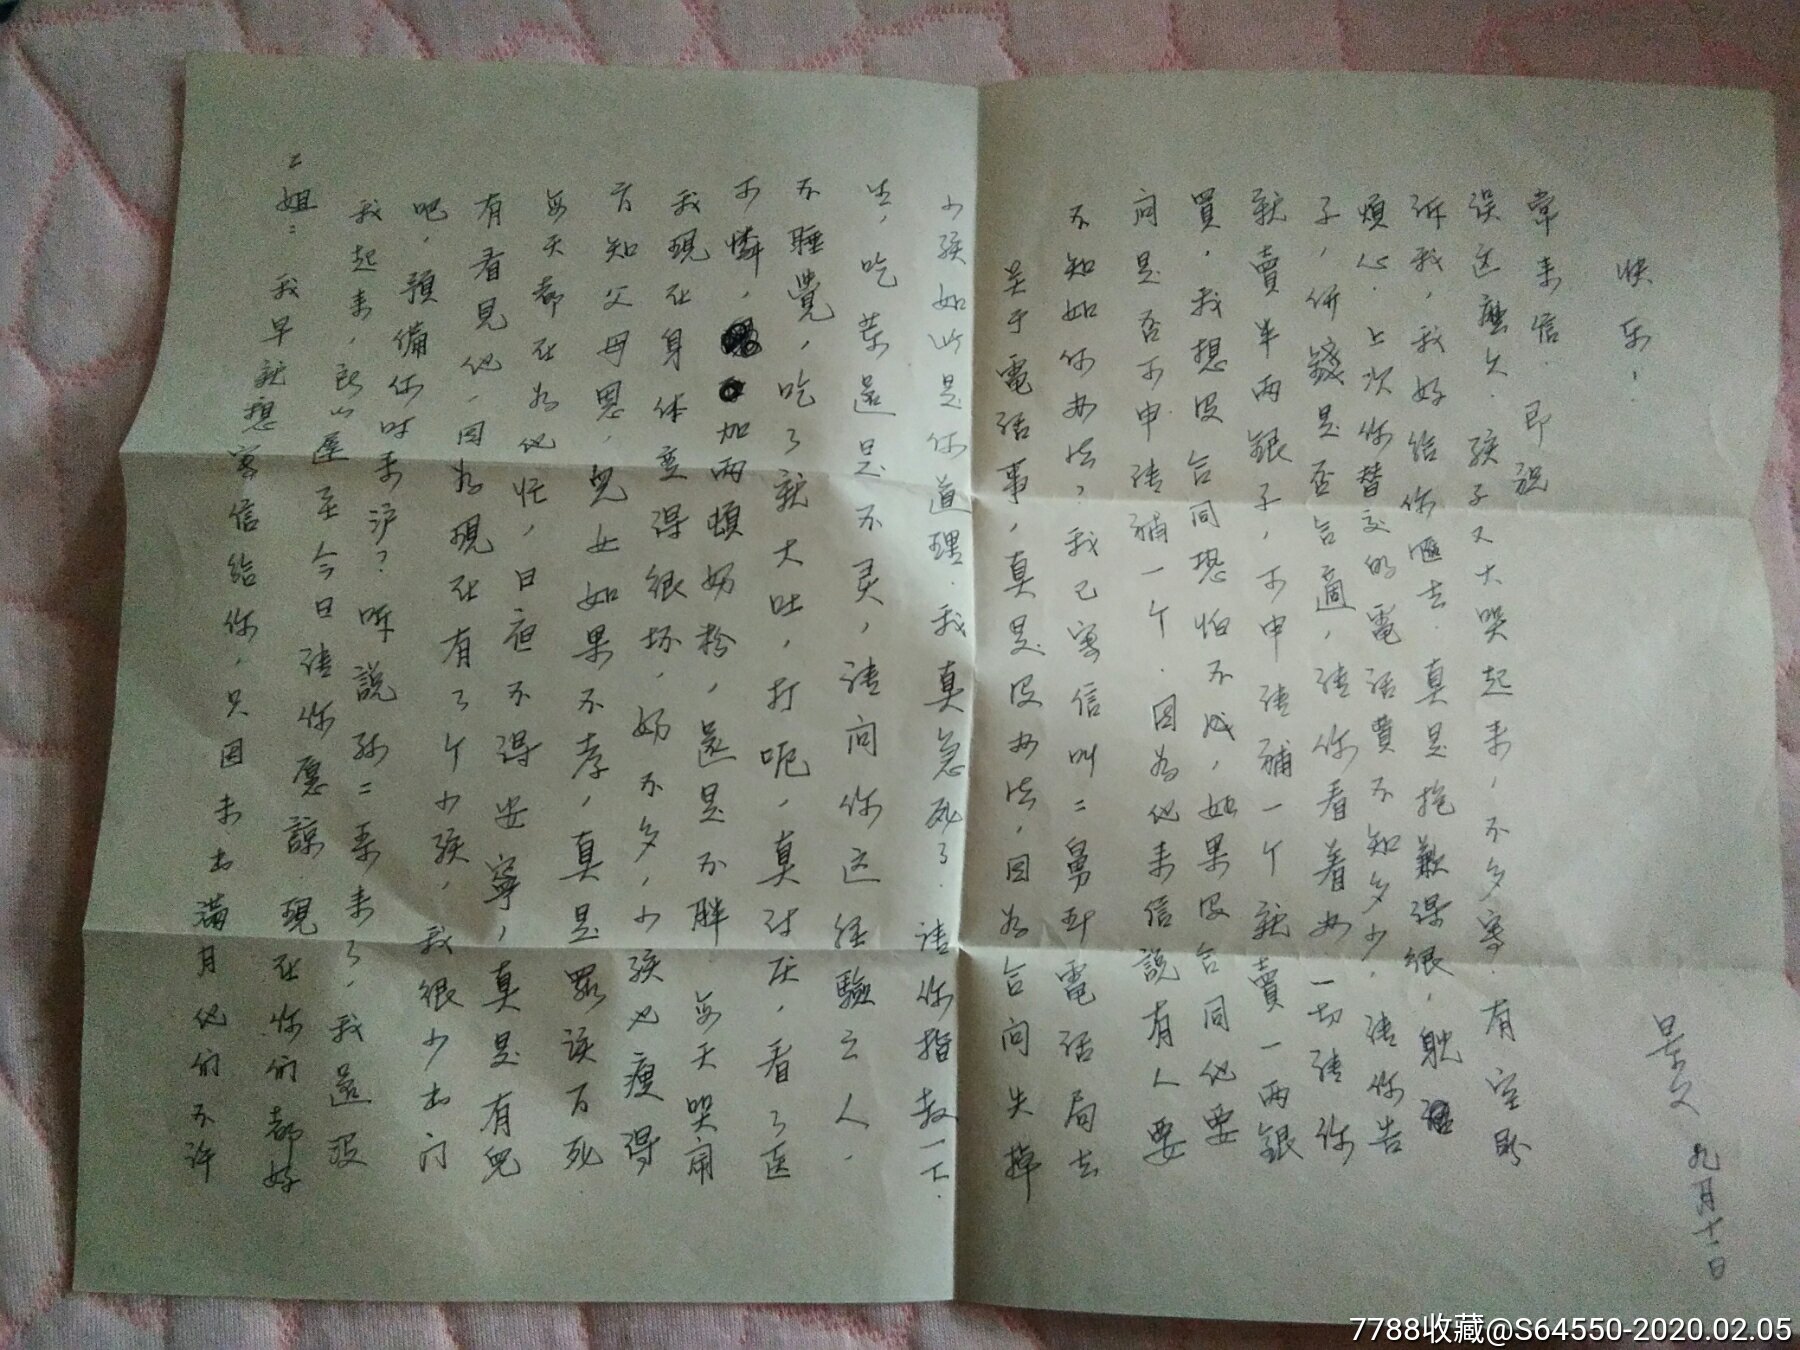 二姐: 我早就想寫信給你,只因未出滿月他們不许
我起来,所以遲至今日请你愿諒.現在你们都好
吧,預備你何时来沪?听說孙二来了,我還没
有看見他,因为現在有了个小孩,我很少出门
每天都在为他忙,日夜不得安寧,真是有兒
方知父母恩,兒女如果不孝,真是罪该万死
我現在身体变得很坏,奶不多,小孩也瘦得
可憐,加两頓奶粉,還是不胖.每天哭闹
不睡覺,吃了就大吐,打呃,真讨厌,看了医
生,吃药還是不灵,请问你这经驗之人,
小孩如此是什道理.我真急死了.请你指教一下.
关于電话事,真是没办法,因为合同失掉
不知如何办法,我已寫信叫二舅到電话局去
问是否可申请補一个.因为他来信說有人要
買,我想没合同恐怕不成,如果没合同他要
就賣半两銀子,可申请補一个就賣一两銀
子,价錢是否合適,请你看着办.一切请你
煩心.上次你替交的電话費不知多少,请你告
诉我,我好给你匯去.真是抱歉得很,耽
误这麽久.孩子又大哭起来,不多寫.有空盼
常来信. 即祝
快乐!
景文
九月十一日
7788收藏@S64550-2020.02.05